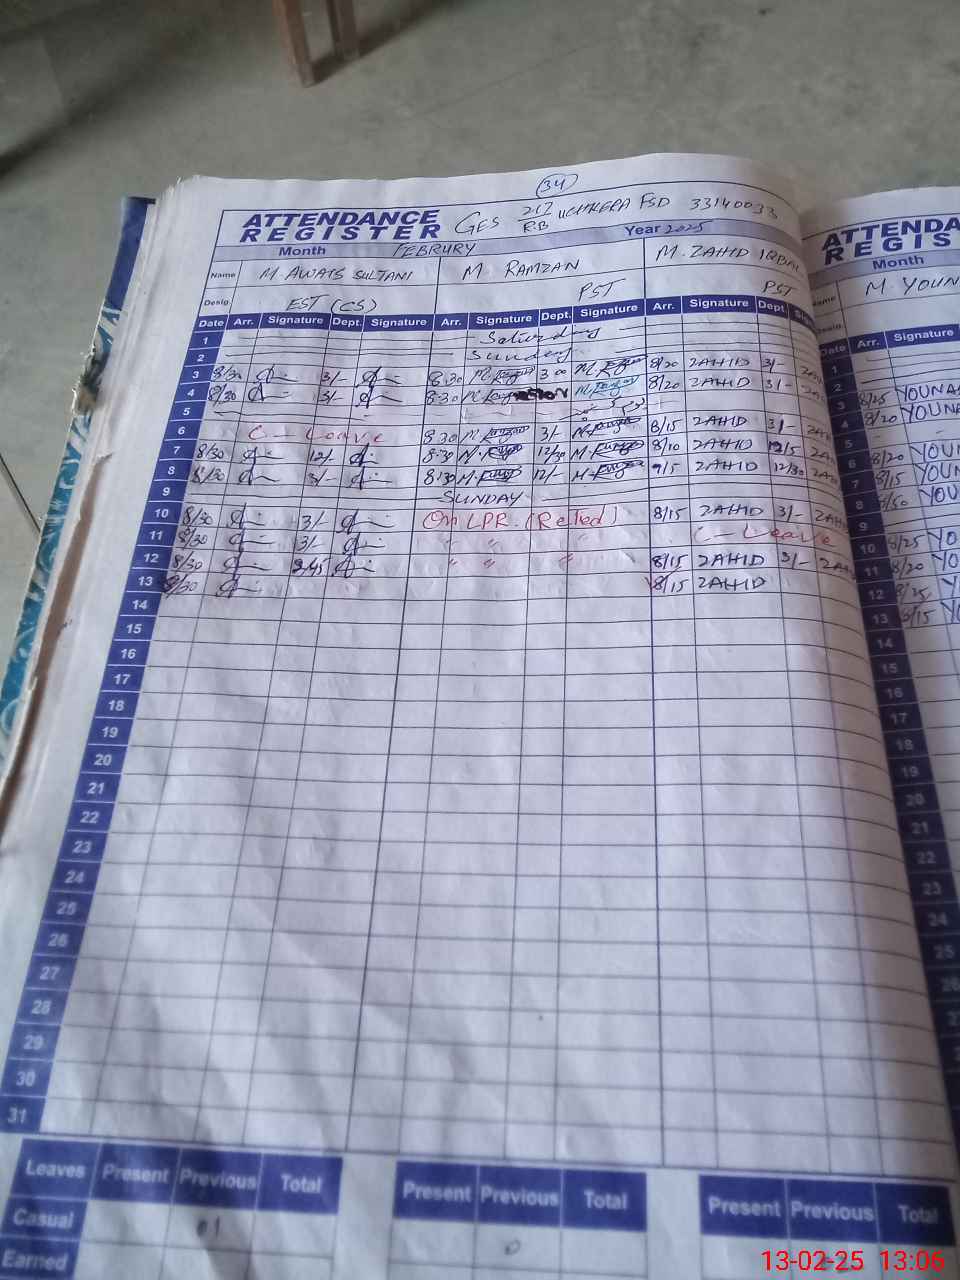 34
ATTENDANCE REGISTER GES 217 R.B UCHKERA FSD 33140033
Month FEBRURY Year 2025
Name M. AWAIS SULTANI M RAMZAN M. ZAHID IQBAL
Desig. EST (CS) PST PST
Date Arr. Signature Dept. Signature Arr. Signature Dept. Signature Arr. Signature Dept.
1 Saturday
2 Sunday
3 8/30 3/- 8:30 3:00 8/20 ZAHID 3/-
4 8/30 3/- 8:30 8/20 ZAHID 3/-
5
6 C - Leave 8:30 3/- 8/15 ZAHID 3/-
7 8/30 12/- 8:30 12/30 8/10 ZAHID 12/5
8 8/30 3/- 8:30 12/- 9/5 ZAHID 12/30
9 SUNDAY
10 8/30 3/- On LPR. (Retied) 8/15 ZAHID 3/-
11 8/30 3/- " " " C - Leave
12 8/30 3,45 " " " 8/15 ZAHID 3/-
13 8/30 8/15 ZAHID
14
15
16
17
18
19
20
21
22
23
24
25
26
27
28
29
30
31
Leaves Present Previous Total Present Previous Total Present Previous Total
Casual 01 0
Earned
ATTENDA
REGIS
Month
Name M. YOUN
Date Arr. Signature
1
2
3 8/25 YOUNA
4 8/20 YOUNA
5
6 8/20 YOU
7 8/15 YOUN
8 8/50 YOU
9
10 8/25 YO
11 8/20 YO
12 8/25 YO
13 8/15 YO
14
15
16
17
18
19
20
21
22
23
24
25
26
13-02-25 13:06